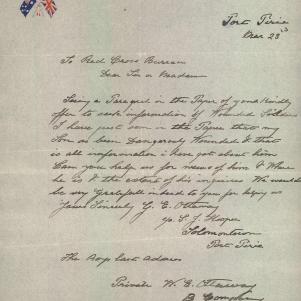 Port Pirie
Mar 23rd
To Red Cross Bureau
Dear Sir or Madam
Seeing a Paragraph in the Paper of your Kindly
offer to seek information of Wounded Soldiers
I have just seen in the Paper that my
Son as been Dangerously Wounded & that
is all information i have got about him
Can you help us for news of him & Where
he is & the extent of his injuries We would
be very Gratefull indeed to you for helping us
Yours Sincerely G. E. Ottaway
c/o S. J. Hooper
Solomontown
Port Pirie
The Boys Last Address
Private W. E. Ottaway
B Company